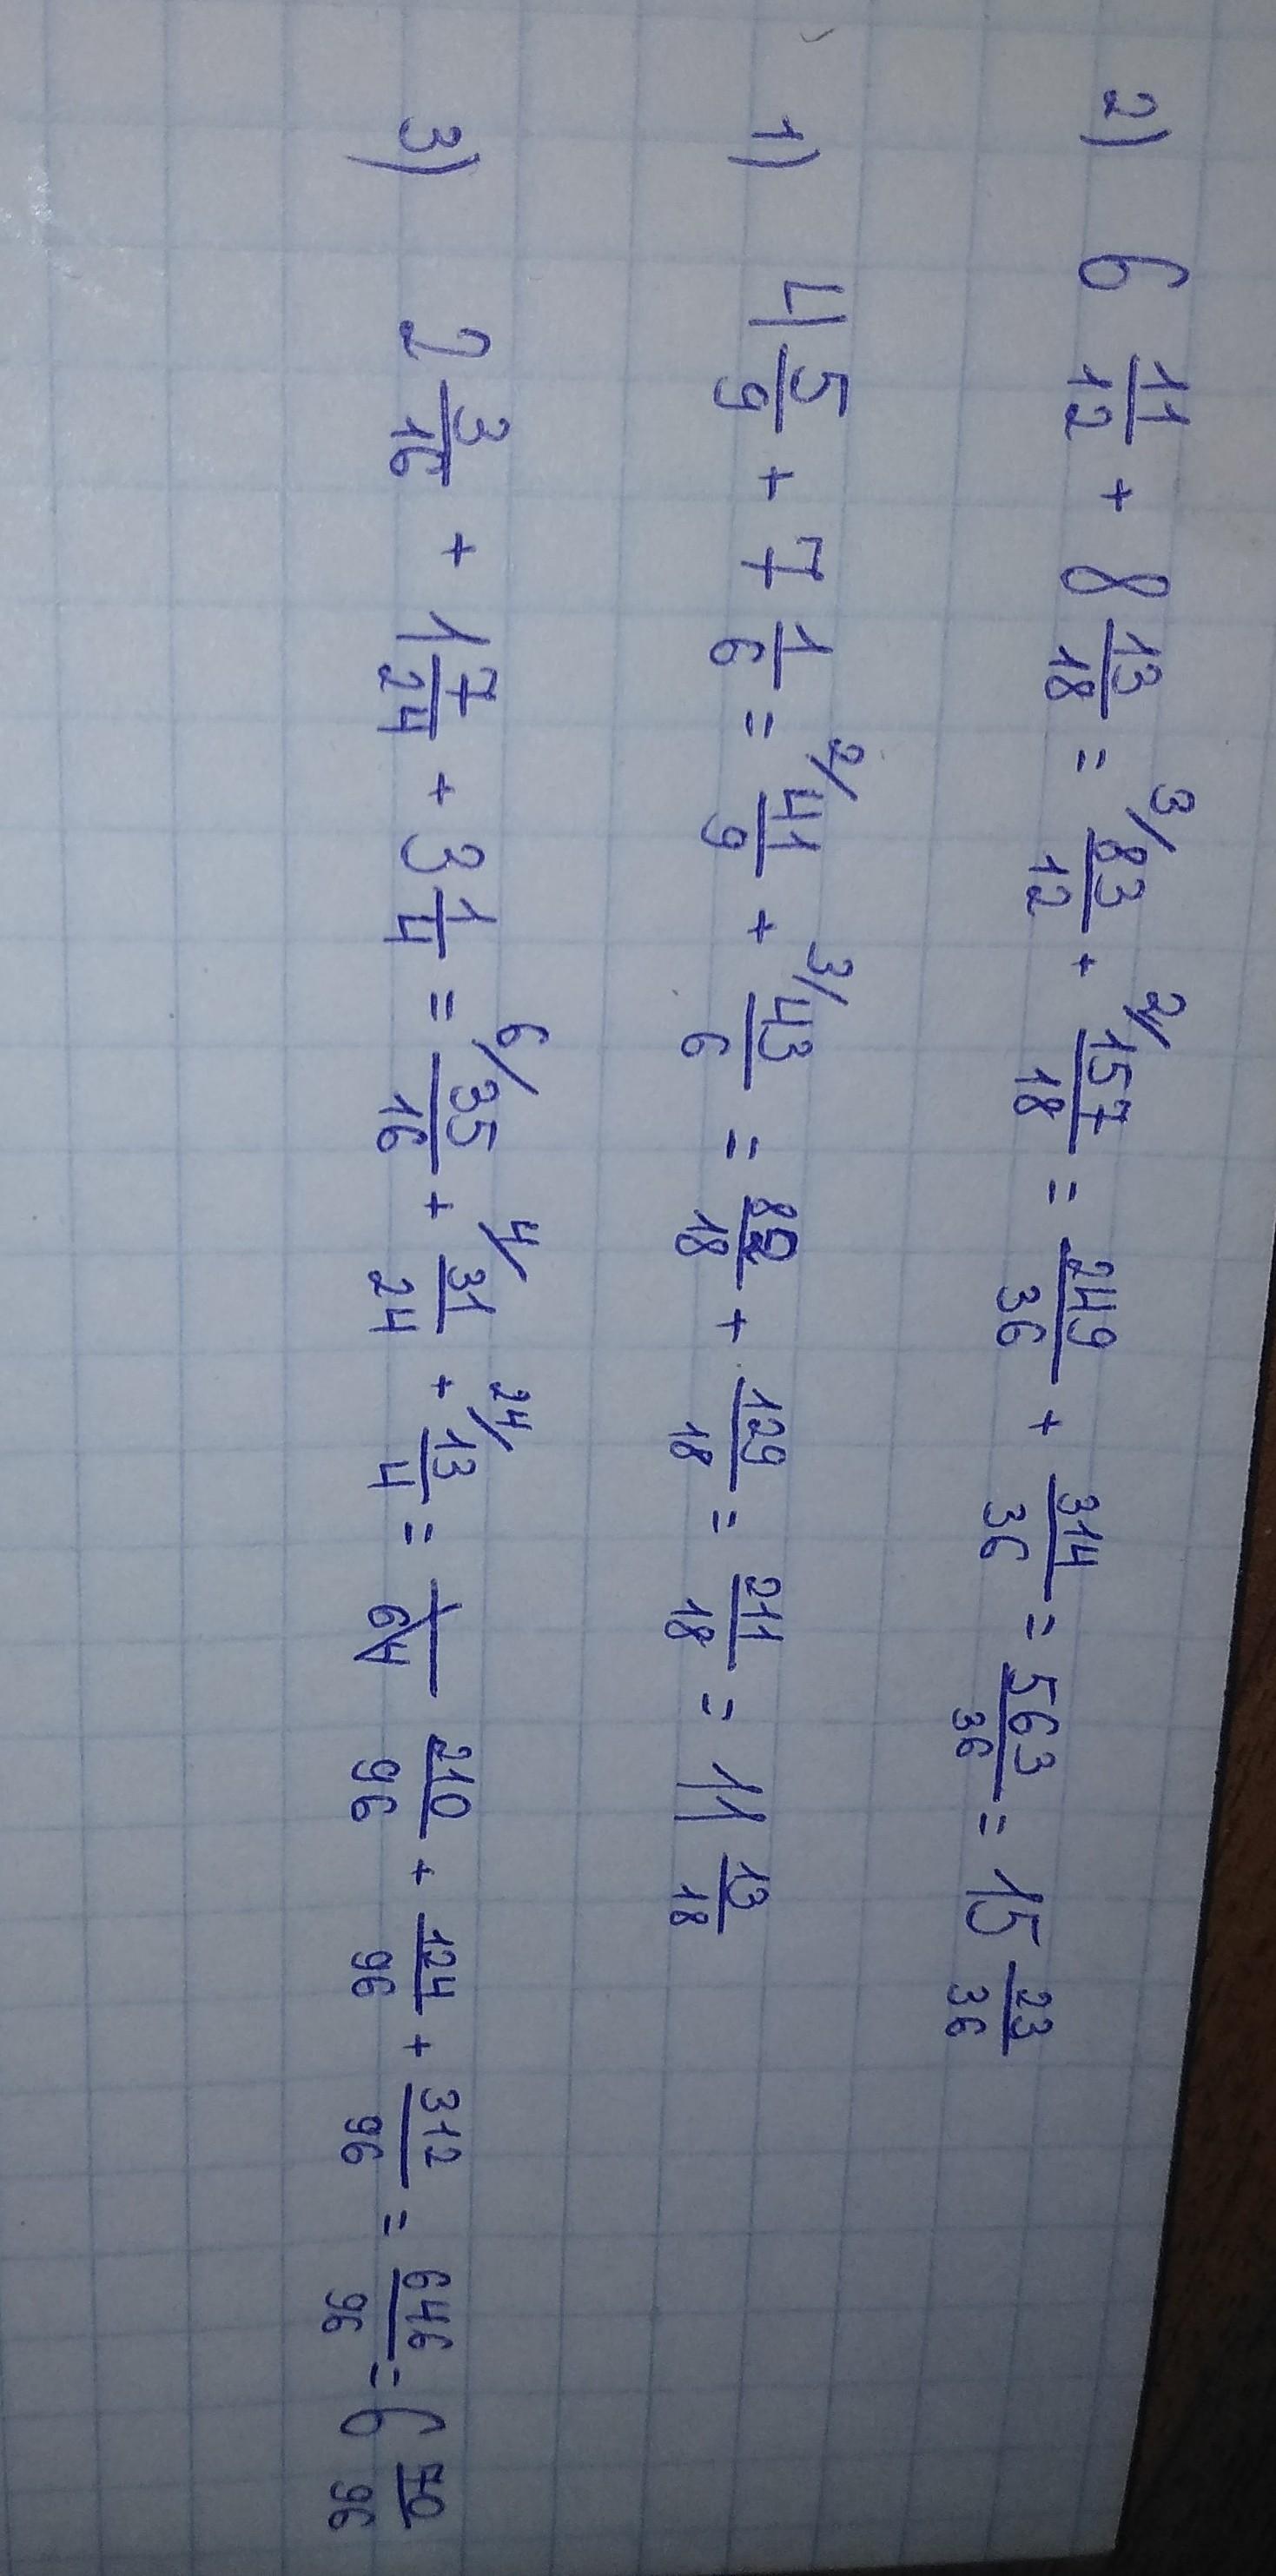 2) 6 11/12 + 8 13/18 = 3/ 83/12 + 2/ 157/18 = 249/36 + 314/36 = 563/36 = 15 23/36
1) 4 5/9 + 7 1/6 = 2/ 41/9 + 3/ 43/6 = 82/18 + 129/18 = 211/18 = 11 13/18
3) 2 3/16 + 1 7/24 + 3 1/4 = 6/ 35/16 + 4/ 31/24 + 24/ 13/4 = 210/96 + 124/96 + 312/96 = 646/96 = 6 70/96